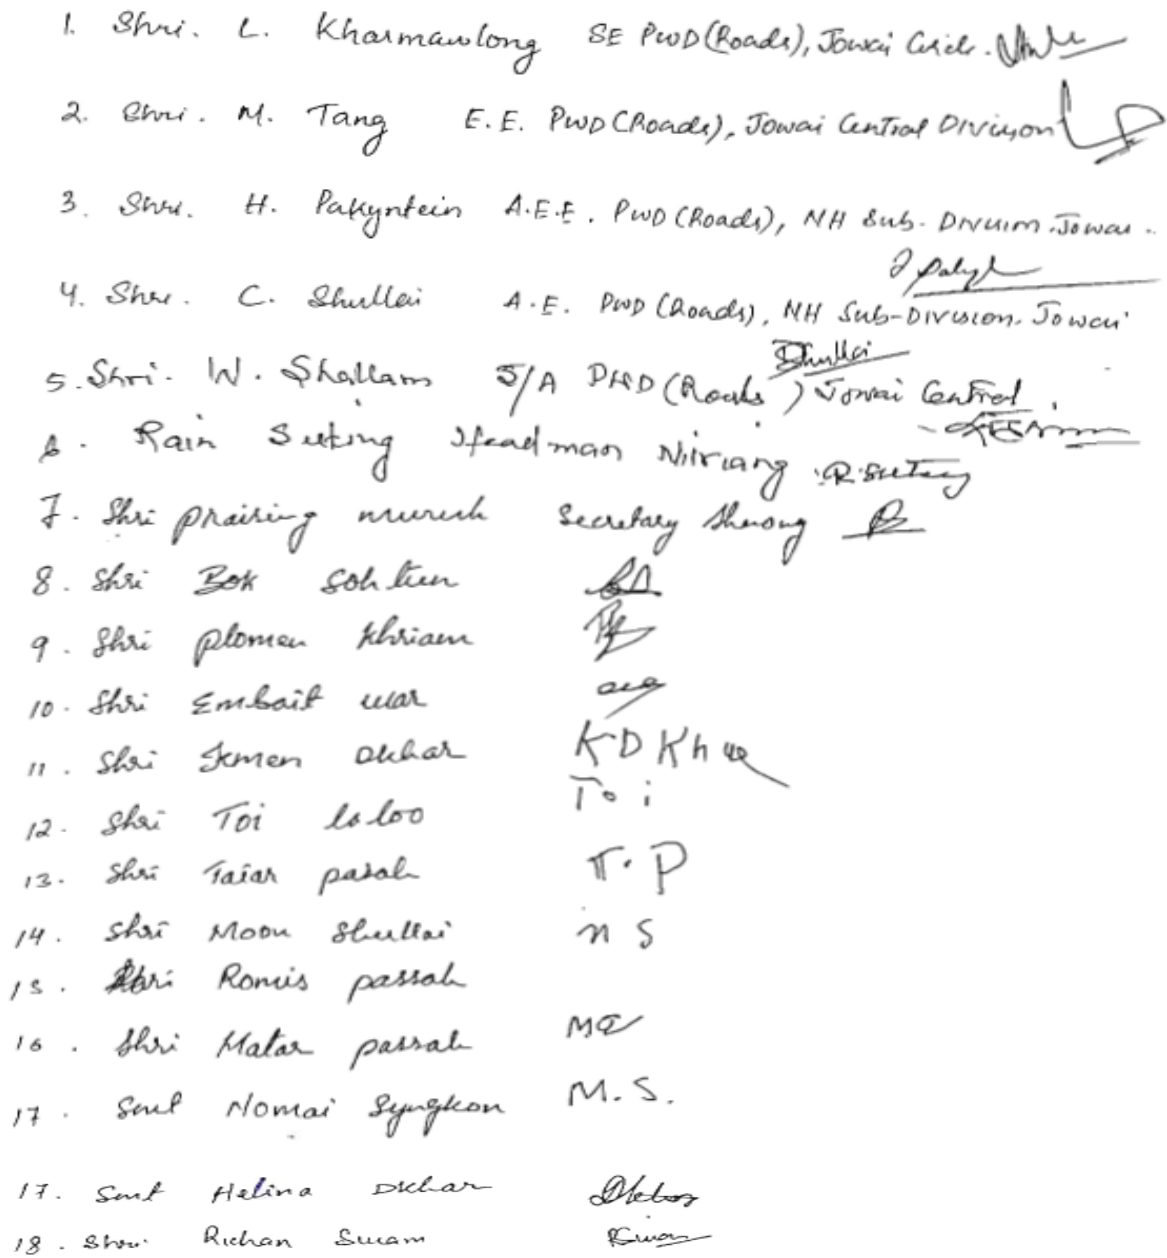 1. Shri. L. Kharmawlong SE PWD (Roads), Jowai Circle.
2. Shri. M. Tang E.E. PWD (Roads), Jowai Central Division
3. Shri. H. Pakyntein A.E.E. PWD (Roads), NH Sub-Division. Jowai.
4. Shri. C. Shullai A.E. PWD (Roads), NH Sub-Division. Jowai
Shullai
5. Shri. W. Shallam J/A PWD (Roads) Jowai Central.
6. Rain Suting Headman Niriang R. Suting
7. Shri praising muruh Secretary Shnong
8. Shri Bok Sohtun
9. Shri plomen Khriam
10. Shri Embait war
11. Shri Ikmen Dkhar K D Kh
12. Shri Toi laloo Toi
13. Shri Taiar pasah T.P
14. Shri Moon Shullai n S
15. Shri Romis passah
16. Shri Matar passah
17. Smt Nomai Syngkon M.S.
17. Smt Helina Dkhar
18. Shri Richan Swam